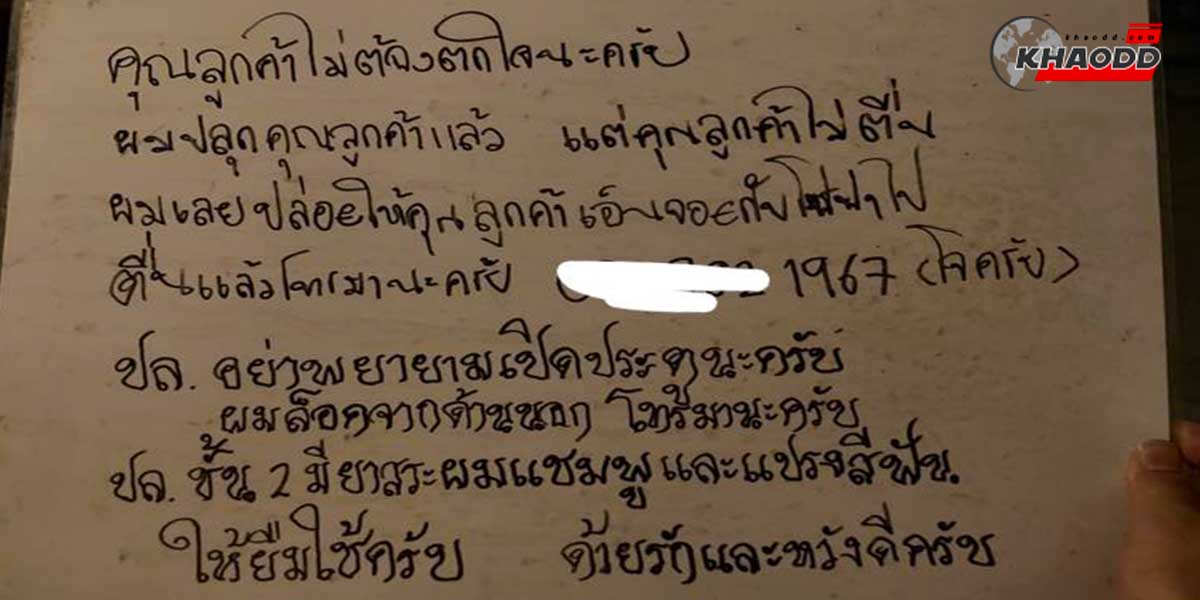 khaodd.com
KHAODD
คุณลูกค้าไม่ต้องตกใจนะครับ
ผมปลุกคุณลูกค้าแล้ว แต่คุณลูกค้าไม่ตื่น
ผมเลยปล่อยให้คุณลูกค้าเอ็นจอยกับ ไป
ตื่นแล้วโทรมานะครับ 1967 (โจครับ)
ปล. อย่าพยายามเปิดประตูนะครับ
ผมล็อคจากด้านนอก โทรมานะครับ
ปล. ชั้น 2 มียาสระผมแชมพูและแปรงสีฟัน
ให้ยืมใช้ครับ ด้วยรักและหวังดีครับ